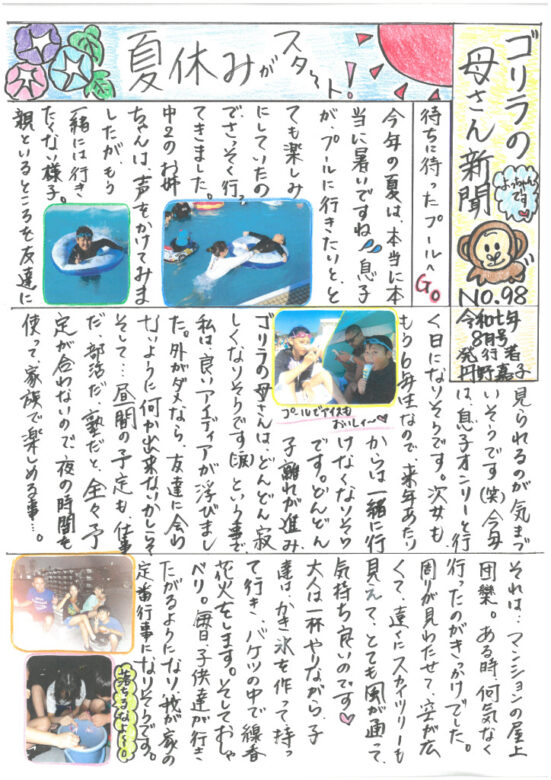 夏休みがスタート!
ゴリラの
母さん新聞
よっちゃんです♥
NO.98
令和七年
8月号
発行
待ちに待ったプールへGO
今年の夏は、本当に本
当に暑いですね 息子
が、プールに行きたいと、と
ても楽しみ
にしていたの
で、さっそく行っ
てきました。
中2のお姉
ちゃんは、声をかけてみま
したが、もう
一緒には行き
たくない様子。
親といるところを友達に
見られるのが気まず
いそうです(笑)今年
は、息子オンリーと行
く日になりそうです。次女も
もう6年生なので、来年あたり
からは一緒に行
けなくなりそう
です。どんどん
子離れが進み、
プールでアイスも
おいしぃ〜♥
ゴリラの母さんは、どんどん寂
しくなりそうです(涙)という事で
私は良いアイディアが浮びまし
た。外がダメなら、友達に会わ
ないように何か出来ないかしら
そして…昼間の予定も、仕事
だ、部活だ、塾だと、全々予
定が合わないので、夜の時間を
使って、家族で楽しめる事…。
それは、マンションの屋上
団欒。ある時、何気なく
行ったのがきっかけでした。
周りが見わたせて、空が広
くて、遠くにスカイツリーも
見えて、とても風が通って、
気持ち良いのです♥
大人は一杯やりながら、子
達はかき氷を作って持っ
て行き、バケツの中で線香
花火をします。そしておしゃ
べり。毎日子供達が行き
たがるようになり、我が家の
定番行事になりそうです。
落ちるなよ〜。